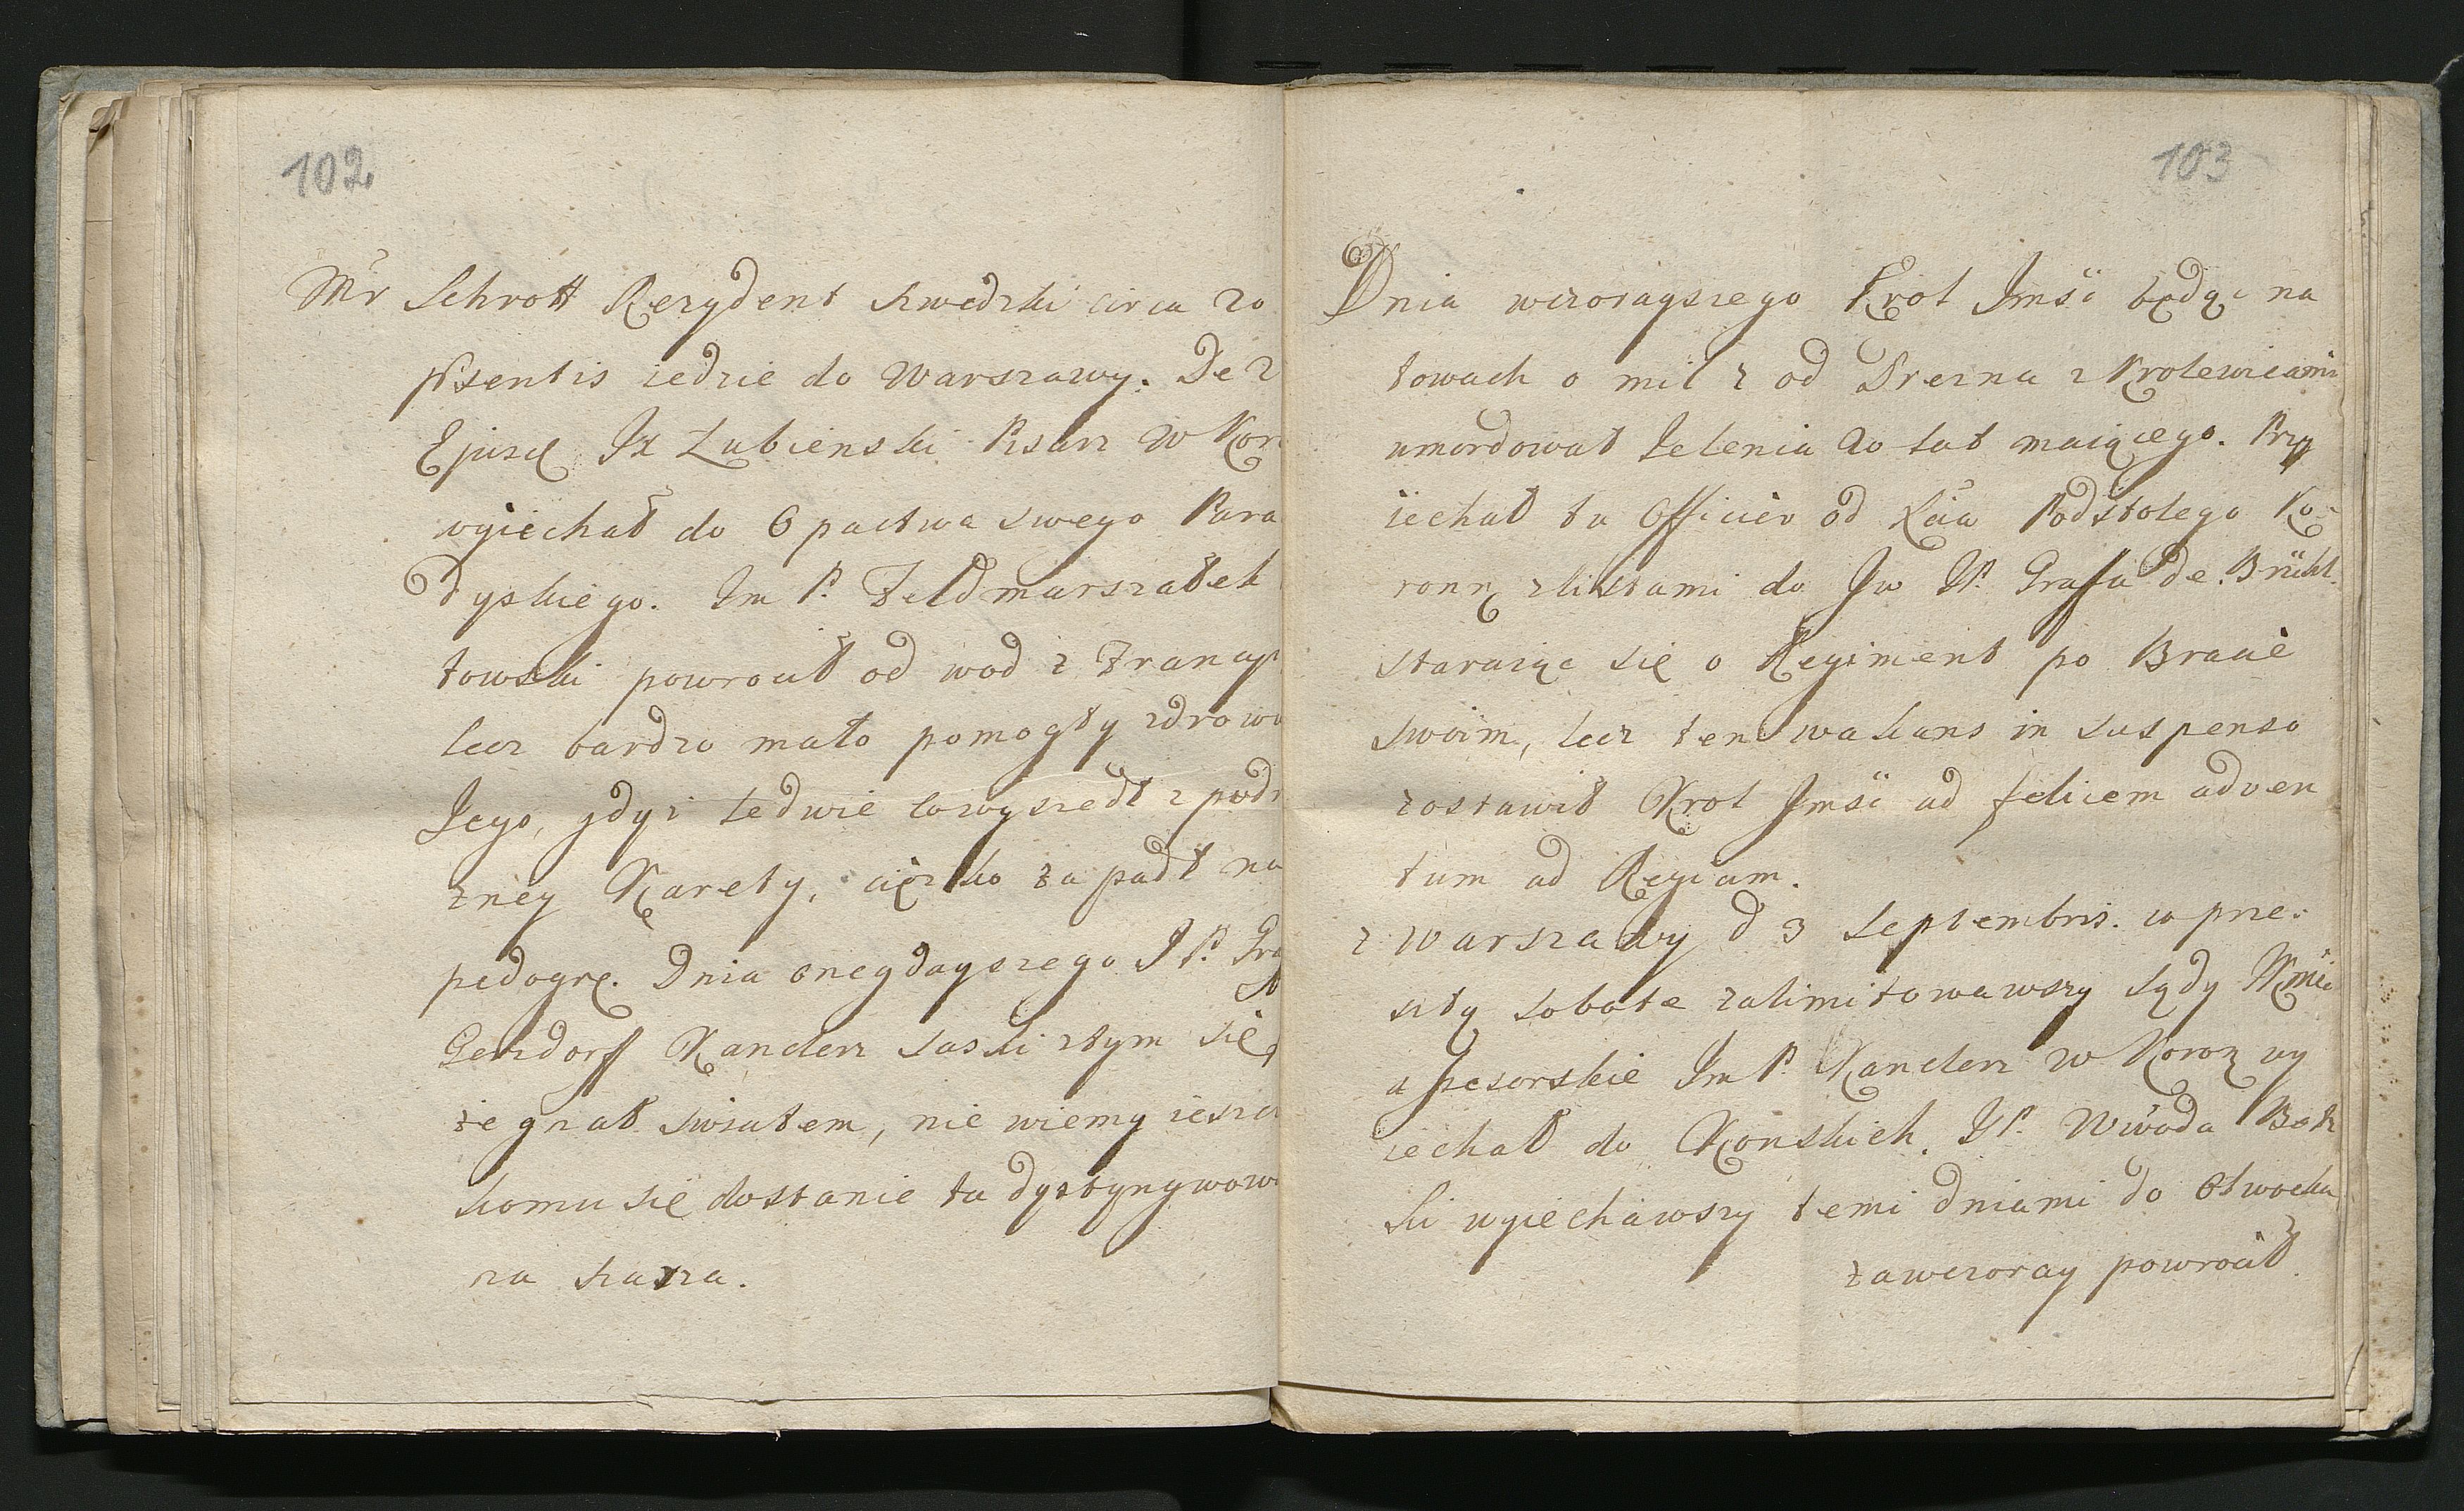 102
Mr Schrott Rezydent szwedzki circa 20
psentis iedzie do Warszawy. De 2
Ejusd Jx Łubienski Pisarz W Kor
wyiechał do Opactwa swego Para
dyskiego. Im P. Feldmarszałek
towski powrocił od wod z Francyi
lecz bardzo mało pomogły zdrowi
Jego, gdyż ledwie co wyszedł z podr
zney Karety, ciężko zapadł na
pedogrę. Dnia onegdayszego J P. Gra
Gersdorff Kanclerz saski z tym się
żegnał swiatem, nie wiemy ieszcz
komu się dostanie ta dystyngwow
na szarza.
103
Dnia wczorayszego Krol Jmsci będąc na
łowach o mil 2 od Drezna z Krolewicami
umordował Jelenia 20 lat maiącego. Przy
iechał tu Officier od Xcia Podstolego Ko-
ronn z listami do Jw JP. Grafa de Brühl
staraiąc się o Regiment po Bracie
swoim, lecz ten wakans in suspenso
zostawił Krol Jmsci ad felicem adven
tum ad Regiam.
z Warszawy d 3 Septembris. w prze-
szłą sobote zalimitowawszy sądy
assesorskie Im P Kanclerz W Koron wy
iechał do Konskich. JP. Wwoda
ki wyiechawszy temi dniami do Otwocka
zawczoray powrocił.